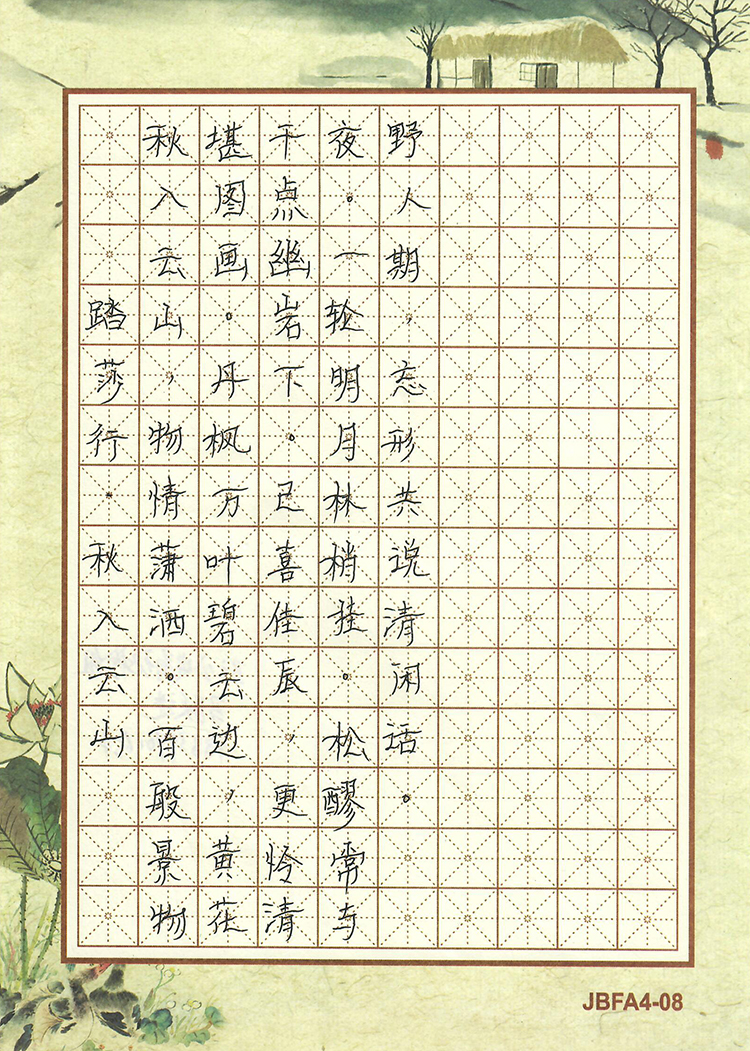 踏莎行·秋入云山
秋入云山，物情潇洒。百般景物
堪图画。丹枫万叶碧云边，黄花
千点幽岩下。已喜佳辰，更怜清
夜。一轮明月林梢挂。松醪常与
野人期，忘形共说清闲话。
JBFA4-08